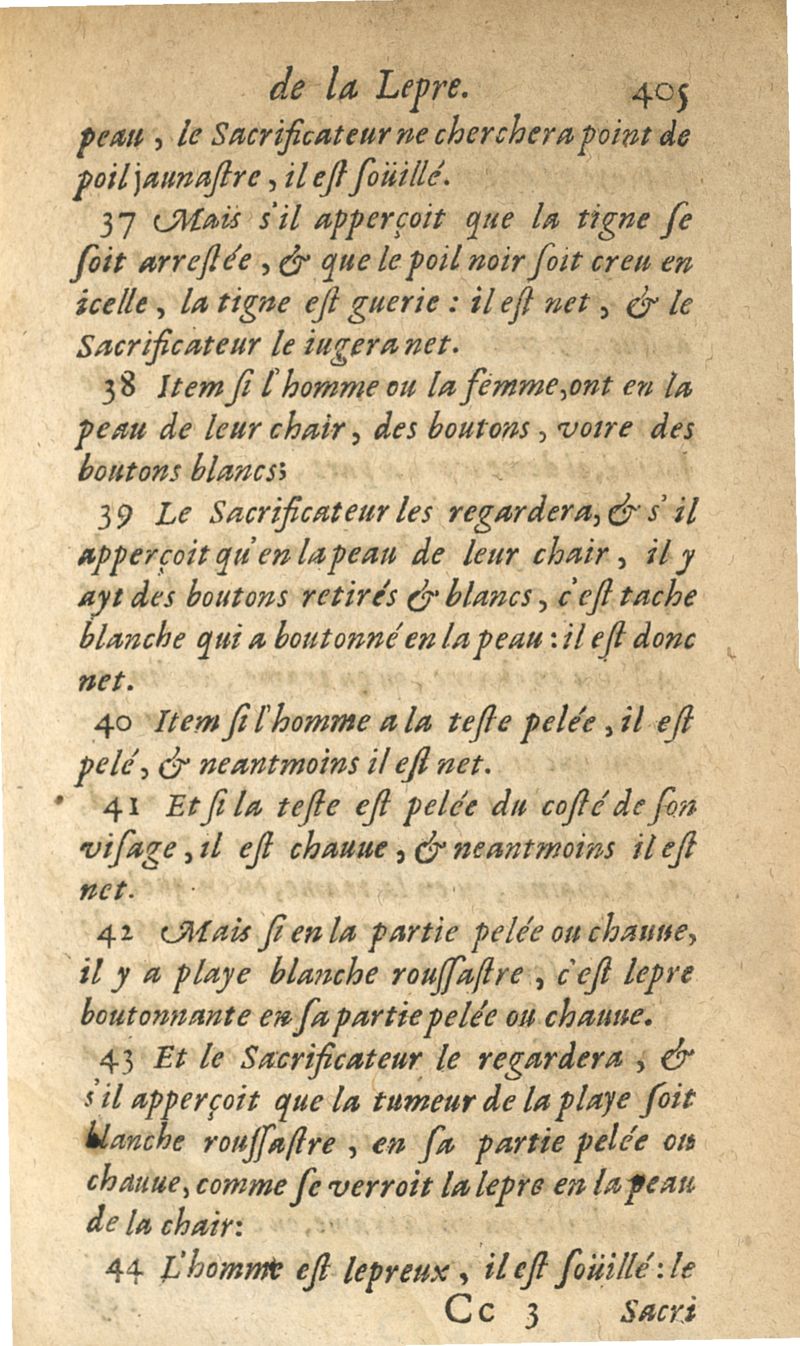 de la Lepre. 405
peau, le Sacrificateur ne cherchera point de
poil jaunaſtre, il eſt ſoüillé.
37 Mais s'il apperçoit que la tigne ſe
ſoit arreſtée, & que le poil noir ſoit creu en
icelle, la tigne eſt guerie : il eſt net, & le
Sacrificateur le iugera net.
38 Item ſi l'homme ou la femme, ont en la
peau de leur chair, des boutons, voire des
boutons blancs;
39 Le Sacrificateur les regardera, & s'il
apperçoit qu'en la peau de leur chair, il y
ayt des boutons retirés & blancs, c'eſt tache
blanche qui a boutonné en la peau : il eſt donc
net.
40 Item ſi l'homme a la teſte pelée, il eſt
pelé, & neantmoins il eſt net.
41 Et ſi la teſte eſt pelée du coſté de ſon
viſage, il eſt chauue, & neantmoins il eſt
net.
42 Mais ſi en la partie pelée ou chauue,
il y a playe blanche rouſſaſtre, c'eſt lepre
boutonnante en ſa partie pelée ou chauue.
43 Et le Sacrificateur le regardera, &
s'il apperçoit que la tumeur de la playe ſoit
blanche rouſſaſtre, en ſa partie pelée ou
chauue, comme ſe verroit la lepre en la peau
de la chair:
44 L'homme eſt lepreux, il eſt ſoüillé : le
Cc 3 Sacri